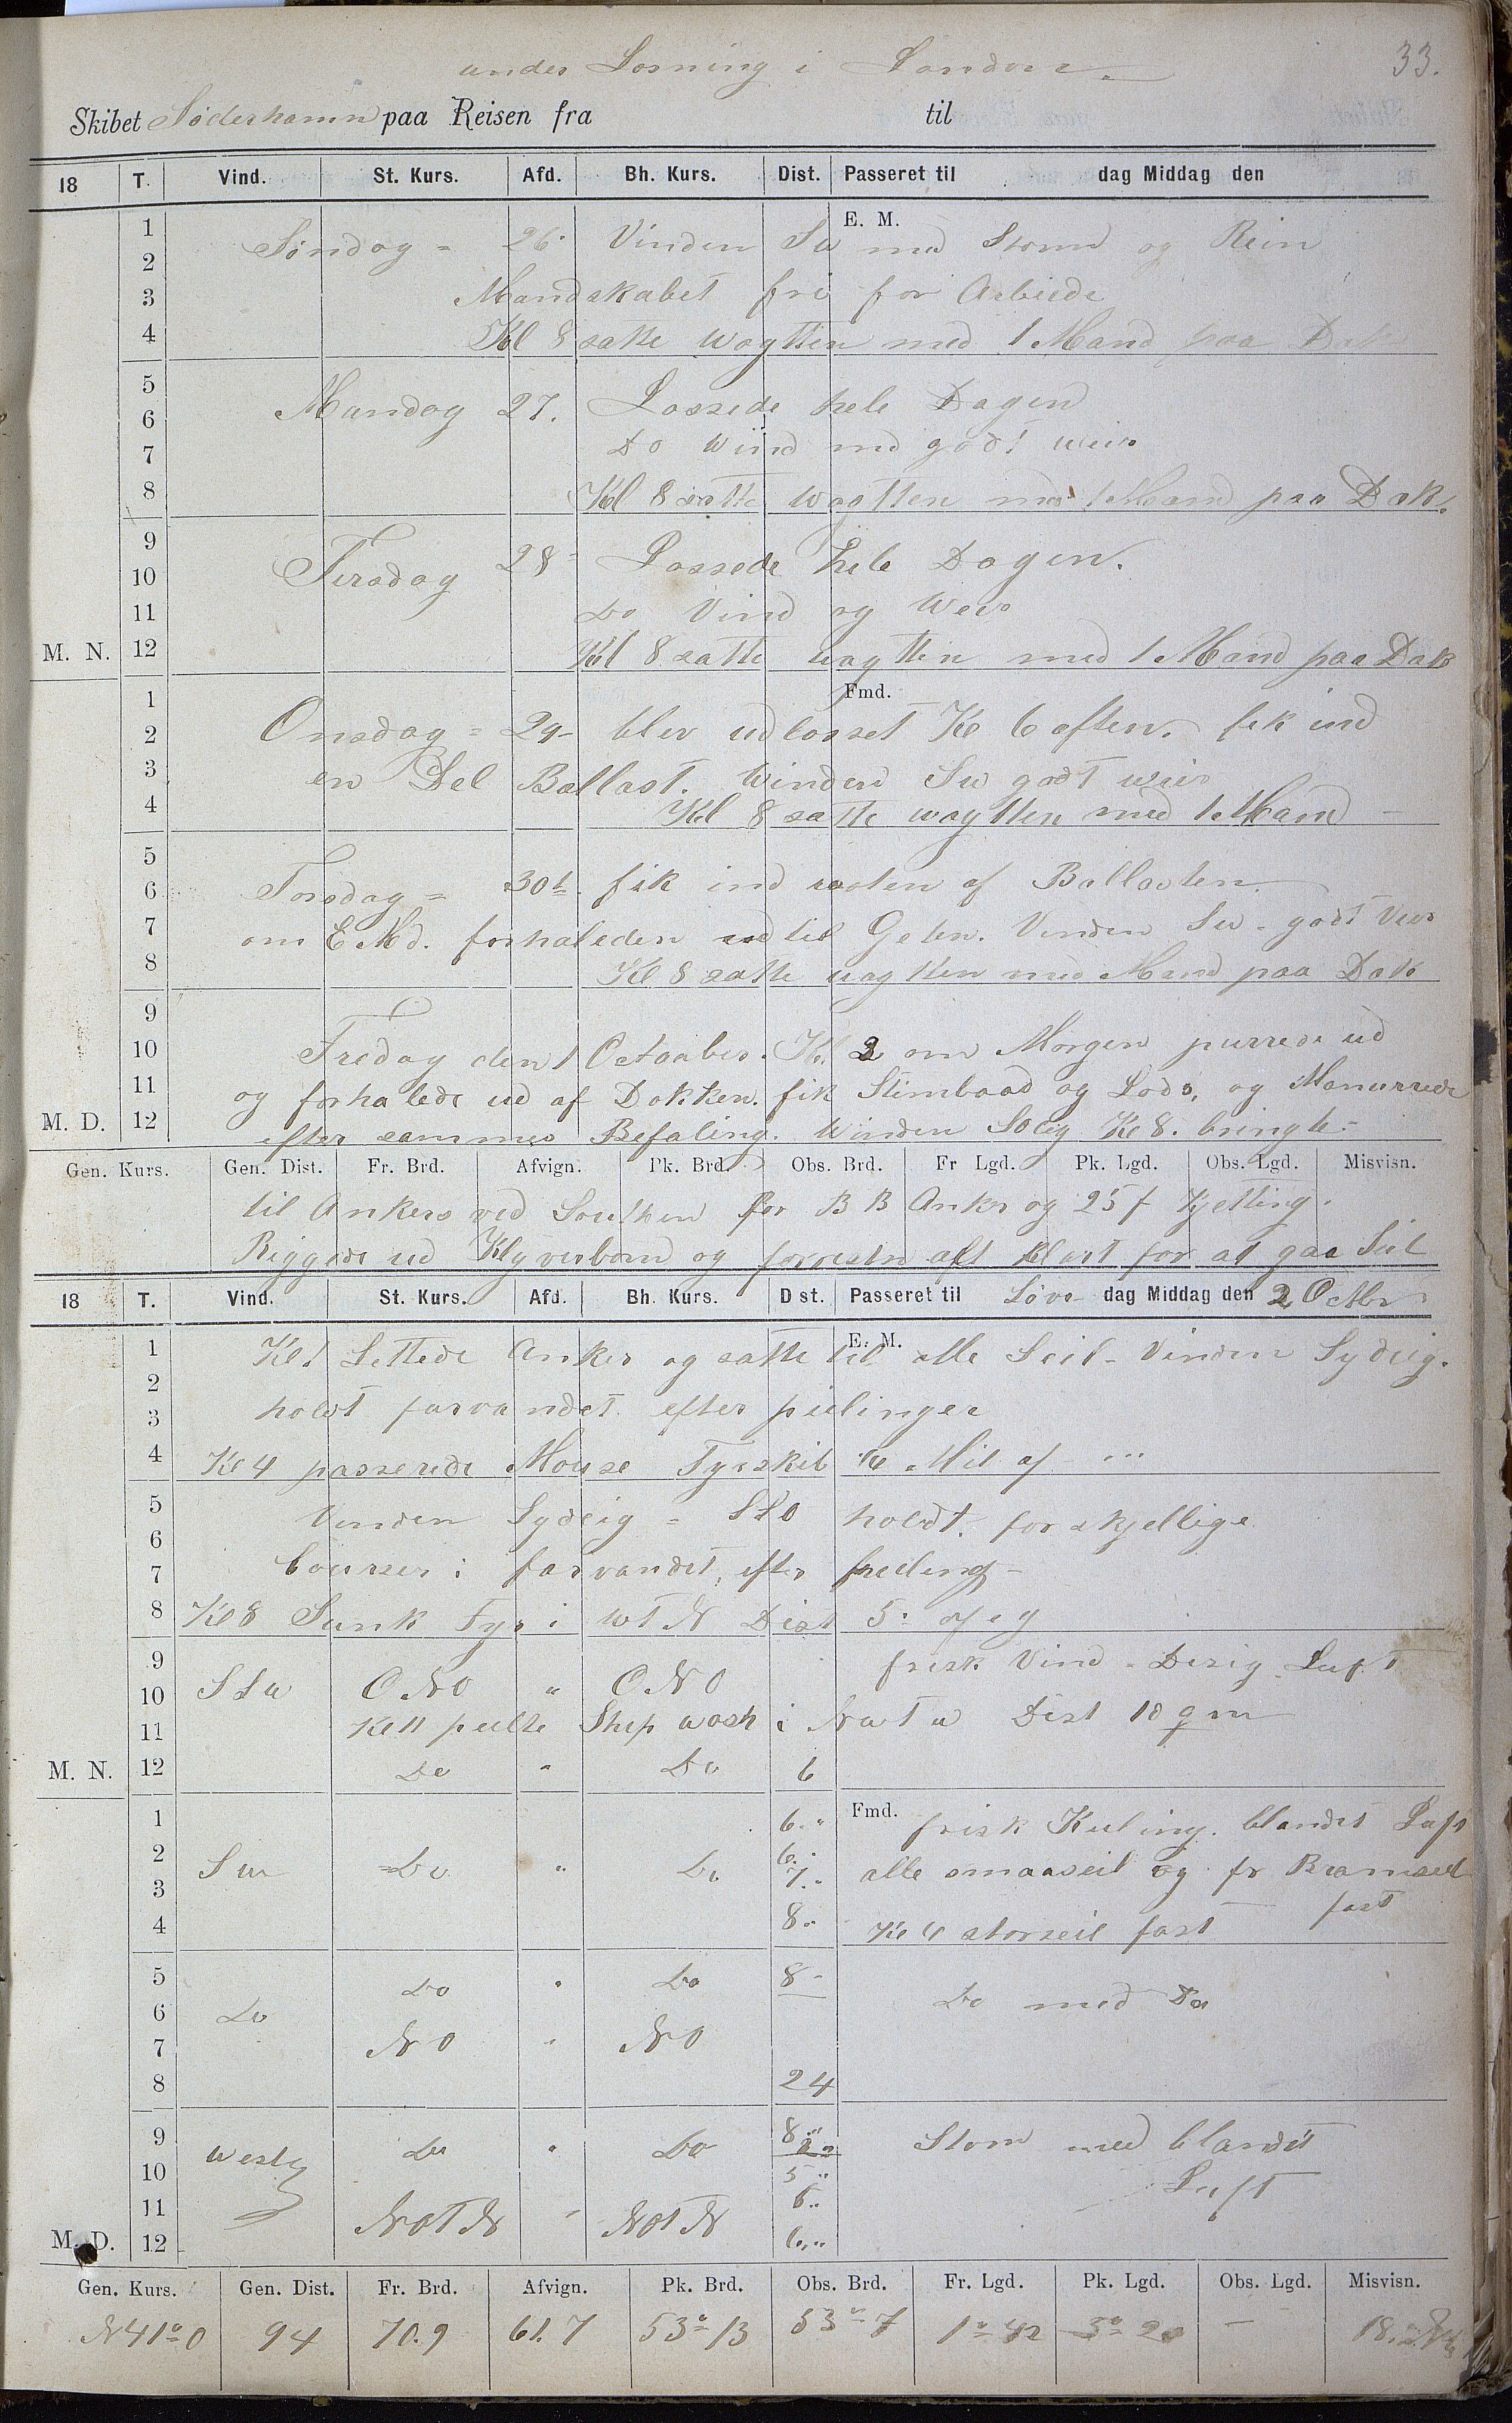 33.
under Losning i London
Skibet Söderhamn paa Reisen fra til
18 T. Vind. St. Kurs. Afd. Bh. Kurs. Dist. Passeret til dag Middag den
E. M.
1 2 3 4
Söndag = 26. Vinden Sw med Storm og Rein
Mandskabet fri for Arbiede
Kl 8 satte wagtten med 1 Mand paa Dæk
5 6 7 8
Mandag 27. Lossede hele Dagen
Do wind med godt weir
Kl 8 satte wagtten med 1 Mand paa Dæk.
9 10 11 12
Tirsdag 28 Lossede hele Dagen.
Do Vind og weir
M. N. Kl 8 satte wagtten med 1 Mand paa Dæk
Fmd.
1 2 3 4
Onsdag = 29 blev udlosset Kl 6 aften. fik ind
en Del Ballast. winden Sw godt weir
Kl 8 satte wagtten med 1 Mand
5 6 7 8
Torsdag = 30t. fik ind resten af Ballasten
om E Md. forhaleden ud til Geten. Vinden Sw. godt Veir
Kl 8 satte wagtten med Mand paa Dæk
9 10 11 12
Fredag den 1 Octoober. Kl. 2 om Morgen purrede ud
og forhalede ud af Dokken. fik Stimbaad og Lods, og Manurrede
M. D. efter sammes Befaling. winden SOlig Kl 8. bringte
Gen. Kurs. Gen. Dist. Fr. Brd. Afvign. Pk. Brd. Obs. Brd. Fr Lgd. Pk. Lgd. Obs. Lgd. Misvisn.
til Ankers ved Southen for B B Anker og 25 f Kjetting.
Riggede ud Klyverbom og forresten alt klart for at gaa Seil
18 T. Vind. St. Kurs. Afd. Bh. Kurs. Dist. Passeret til Löver dag Middag den 2 Octbr
E. M.
1 2 3 4
Kl 1 Lettede Anker og satte til alle Seil - Vinden Sydlig.
holdt farvandet efter pielinger
Kl 4 passerede Mouse Fyrskib Mil af
5 6 7 8
Vinden Sydlig = SSO holdt. forskjellige
Courser i farvandet, efter
Kl 8 Sunk Fyr i WTN Dist 5.
9 10 11 12
SSw ONO " ONO frisk Vind - Disig Luft
Kl 11 peilte Ship wash i NwTw Dist 10 qm
M. N. Do " Do 6
Fmd.
1 2 3 4
6. " frisk Kuling. blandet Luft
6.
Sw Do " Do 7. " alle smaaseil og fr Bramseil
8. " Kl 4 storseil fast fast
5 6 7 8
Do " Do 8 -
Do Do med Do
NO " NO
24
9 10 11 12
8 "
Westlg Do " Do Storm med blandet
5 "
Luft
6 "
NOTN " NOTN
M. D. 6, "
Gen. Kurs. Gen. Dist. Fr. Brd. Afvign. Pk. Brd. Obs. Brd. Fr. Lgd. Pk. Lgd. Obs. Lgd. Misvisn.
N41°O 94 70.9 61.7 53° 13 53° 7 1° 42 3° 20 -